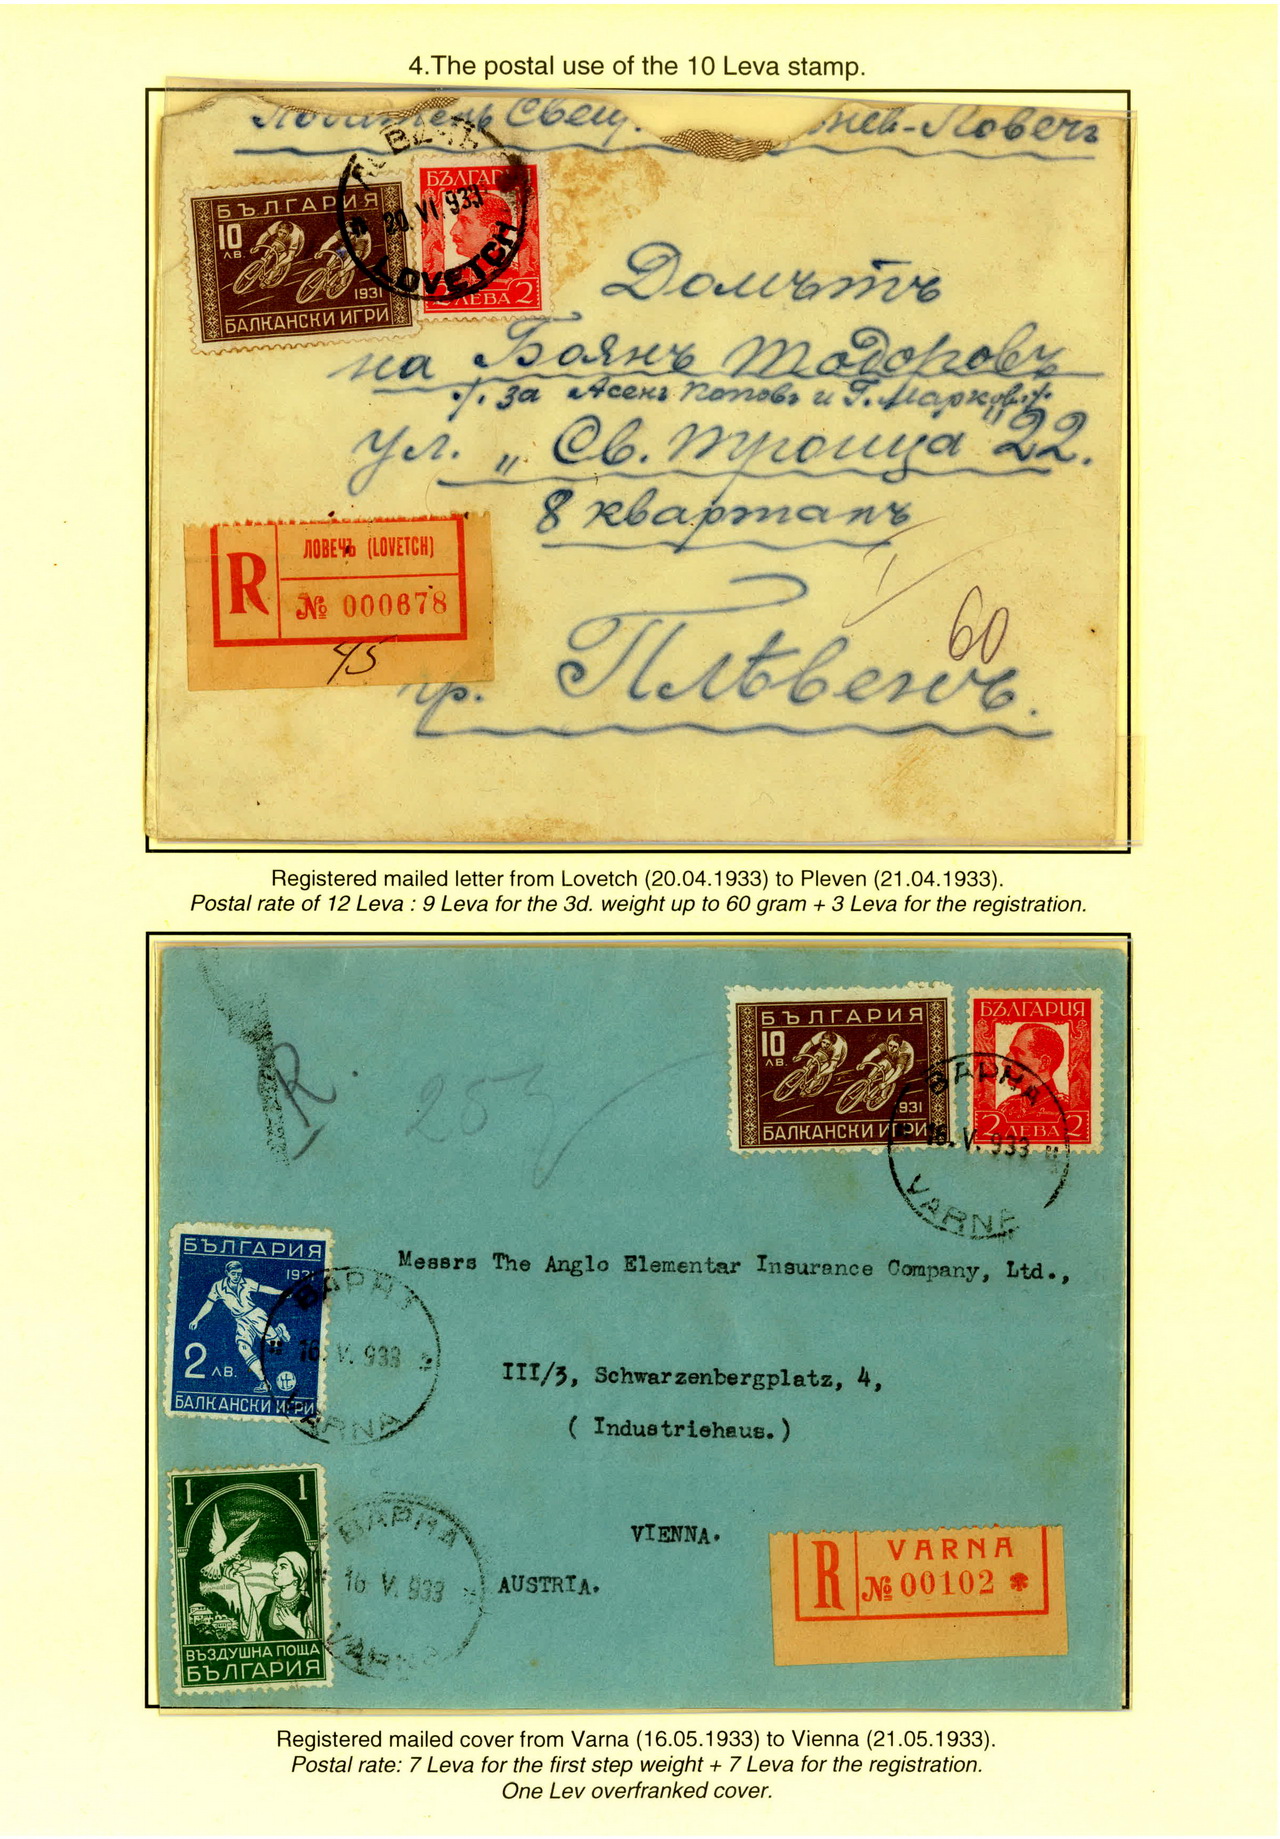 4.The postal use of the 10 Leva stamp.
Ловечъ
БЪЛГАРИЯ
10
ЛВ.
1931
БАЛКАНСКИ ИГРИ
БЪЛГАРИ
2 ЛЕВА 2
20. VI. 933
LOVETCH
Домътъ
на Боянъ Тодоровъ
./. за Асенъ Поповъ и Г. Марковъ ./.
ул. „ Св. Троица" 22.
8 кварталъ
гр. Плѣвенъ.
60
R
ЛОВЕЧЪ (LOVETCH)
№ 000678
45
Registered mailed letter from Lovetch (20.04.1933) to Pleven (21.04.1933).
Postal rate of 12 Leva : 9 Leva for the 3d. weight up to 60 gram + 3 Leva for the registration.
R.
253
БЪЛГАРИЯ
10
ЛВ.
1931
БАЛКАНСКИ ИГРИ
БЪЛГАРИЯ
2 ЛЕВА 2
ВАРНА
16. V. 933
VARNA
БЪЛГАРИЯ
1931
2 ЛВ.
БАЛКАНСКИ ИГРИ
ВАРНА
16. V. 933
VARNA
1 1
ВЪЗДУШНА ПОЩА
БЪЛГАРИЯ
ВАРНА
16 V. 933
VARNA
Messrs The Anglo Elementar Insurance Company, Ltd.,
III/3, Schwarzenbergplatz, 4,
( Industriehaus.)
VIENNA.
AUSTRIA.
R
VARNA
№ 00102 *
Registered mailed cover from Varna (16.05.1933) to Vienna (21.05.1933).
Postal rate: 7 Leva for the first step weight + 7 Leva for the registration.
One Lev overfranked cover.